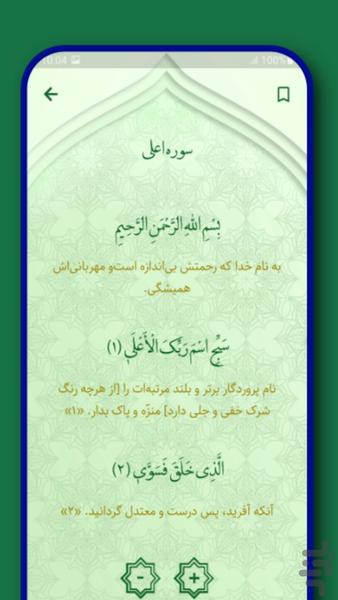 10:04
100%
سوره اعلی
بِسْمِ اللهِ الرَّحْمَنِ الرَّحِیمِ
به نام خدا که رحمتش بی‌اندازه است‌و مهربانی‌اش
همیشگی.
سَبِّحِ اسْمَ رَبِّکَ الْأَعْلَی (۱)
نام پروردگار برتر و بلند مرتبه‌ات را [از هرچه رنگ
شرک خفی و جلی دارد] منزّه و پاک بدار. «۱»
الَّذِی خَلَقَ فَسَوَّی (۲)
آنکه آفرید، پس درست و معتدل گردانید. «۲»
- +
بازار